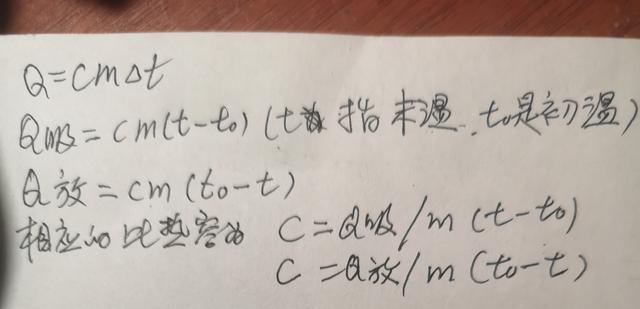 Q=cm△t
Q吸=cm(t-t₀)(t指末温.t₀是初温)
Q放=cm(t₀-t)
相应的比热容为 C=Q吸/m(t-t₀)
C=Q放/m(t₀-t)